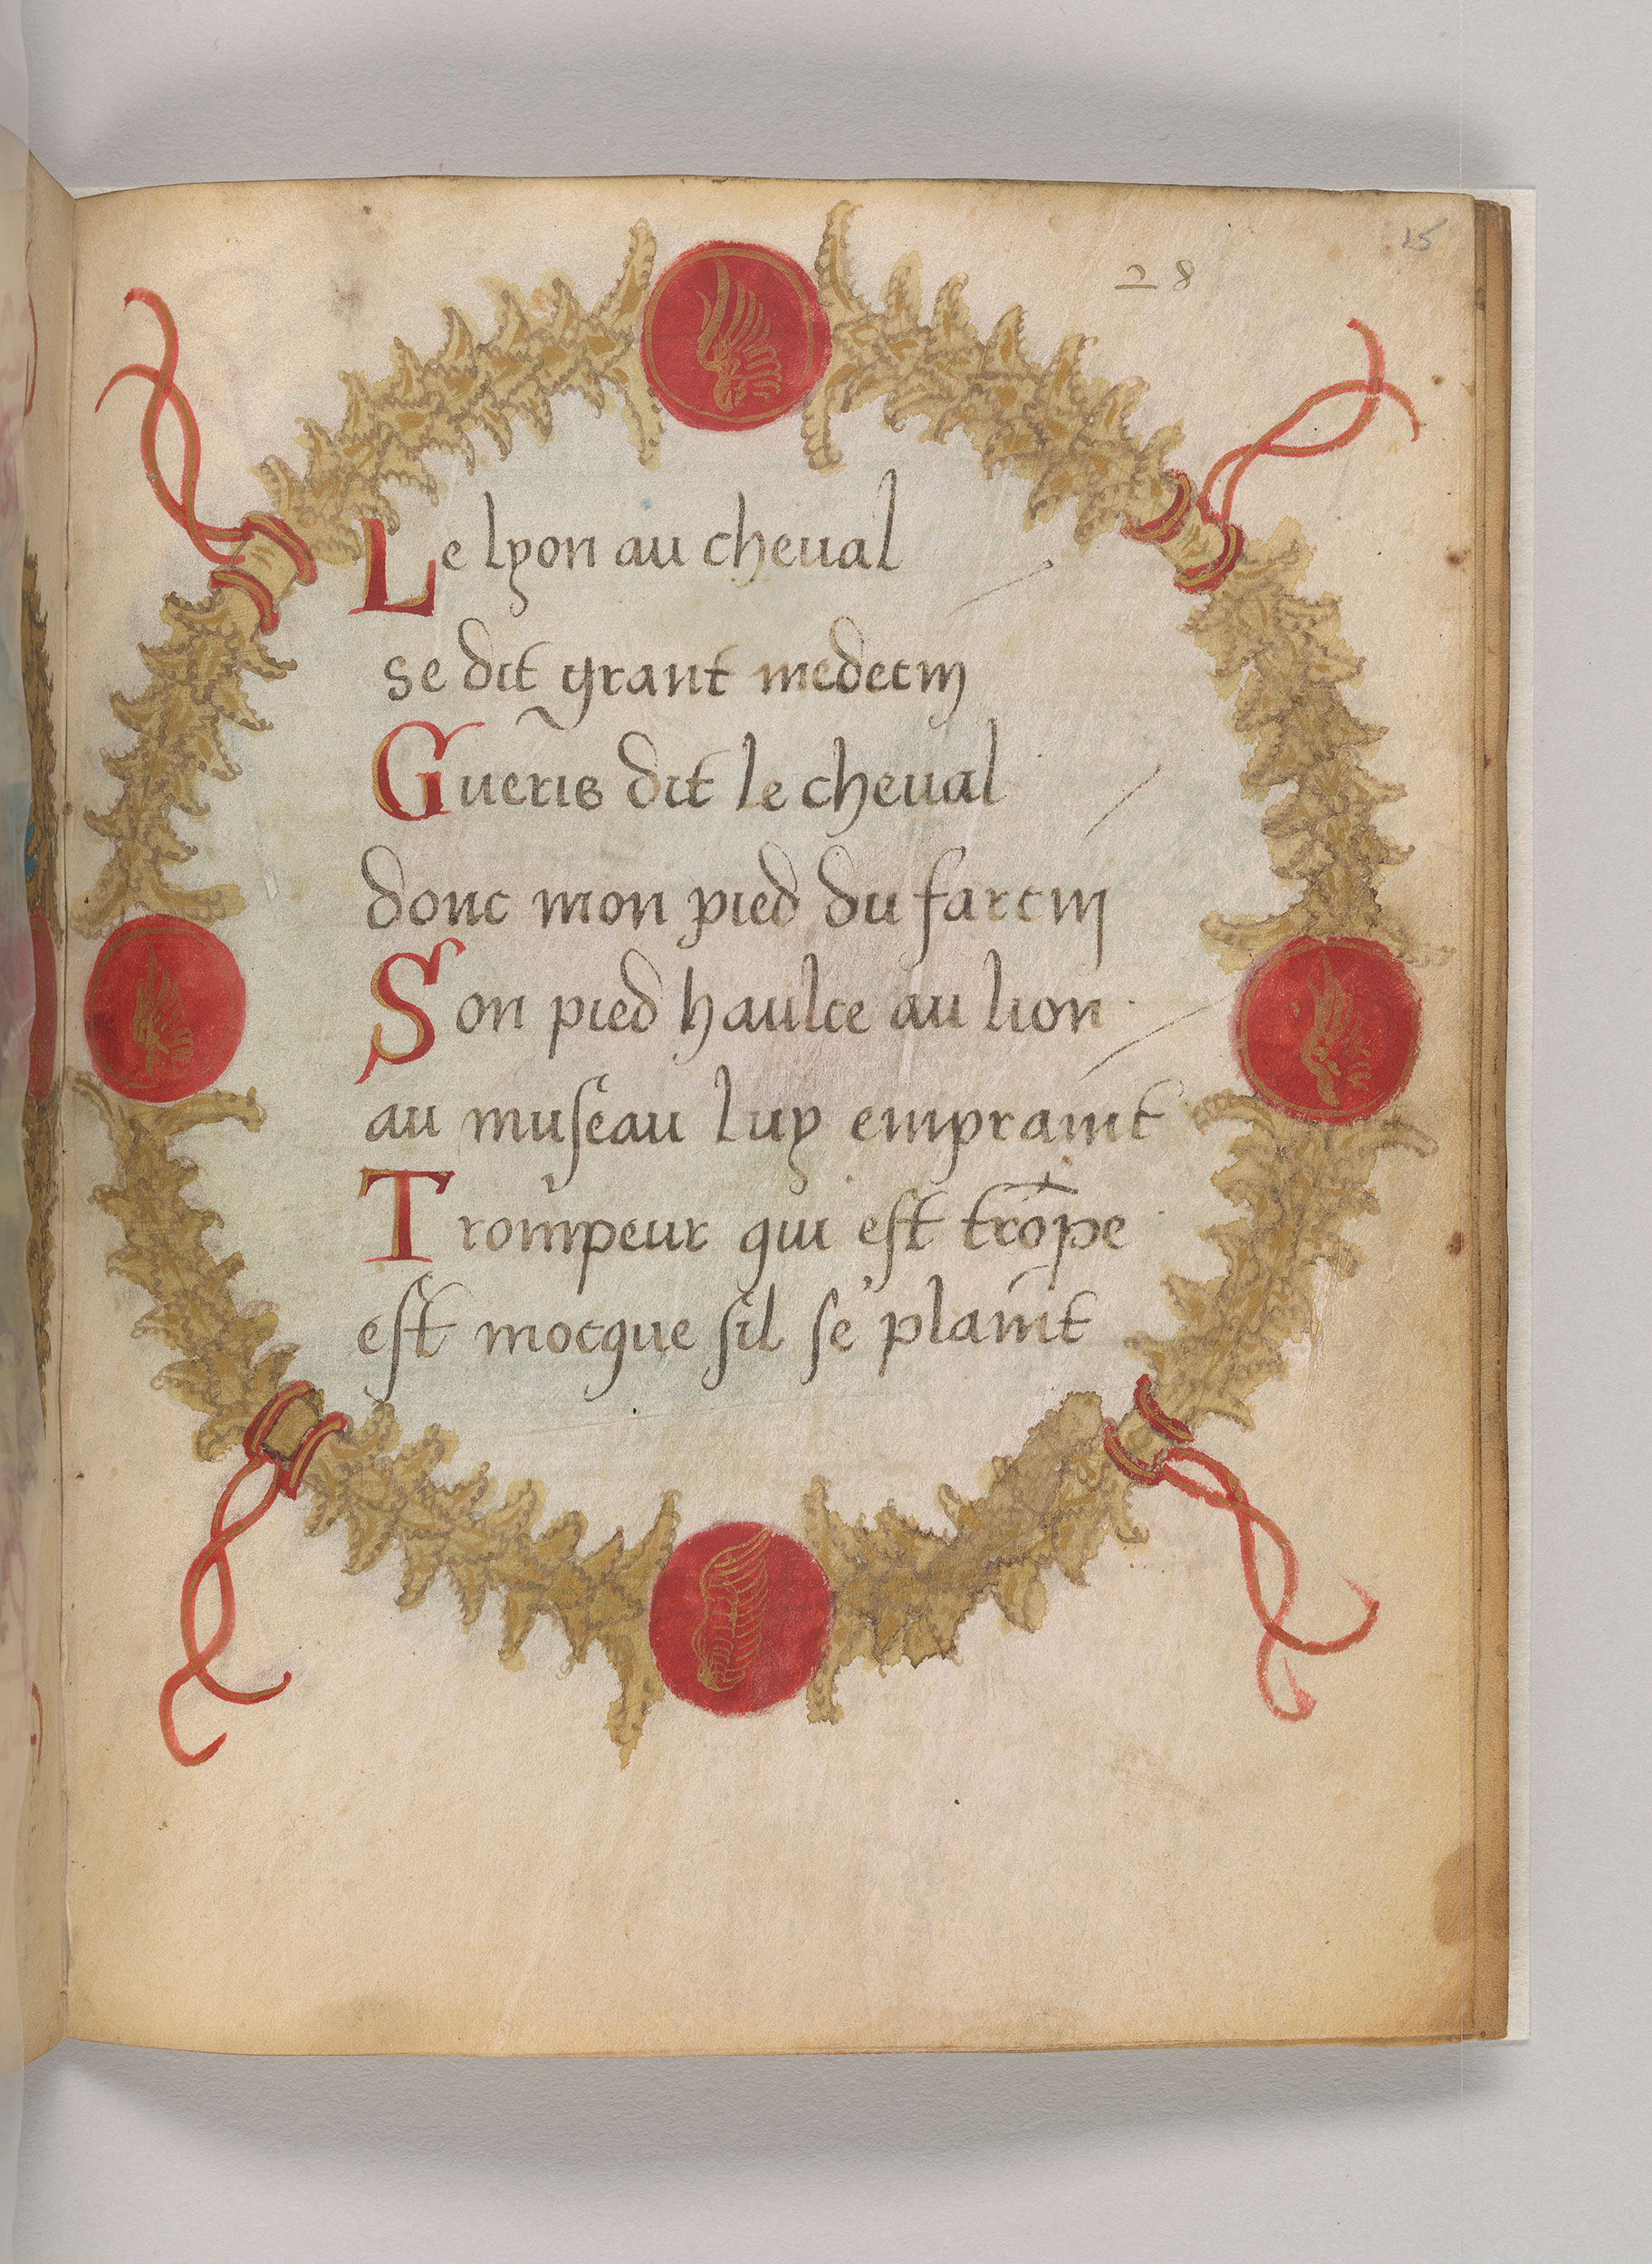 15
28
Le lyon au cheval
se dit grant medecin
Gueris dit le cheval
donc mon pied du farcin
Son pied haulce au lion
au museau luy empraint
Trompeur qui est trõpe
est mocque sil se plaint